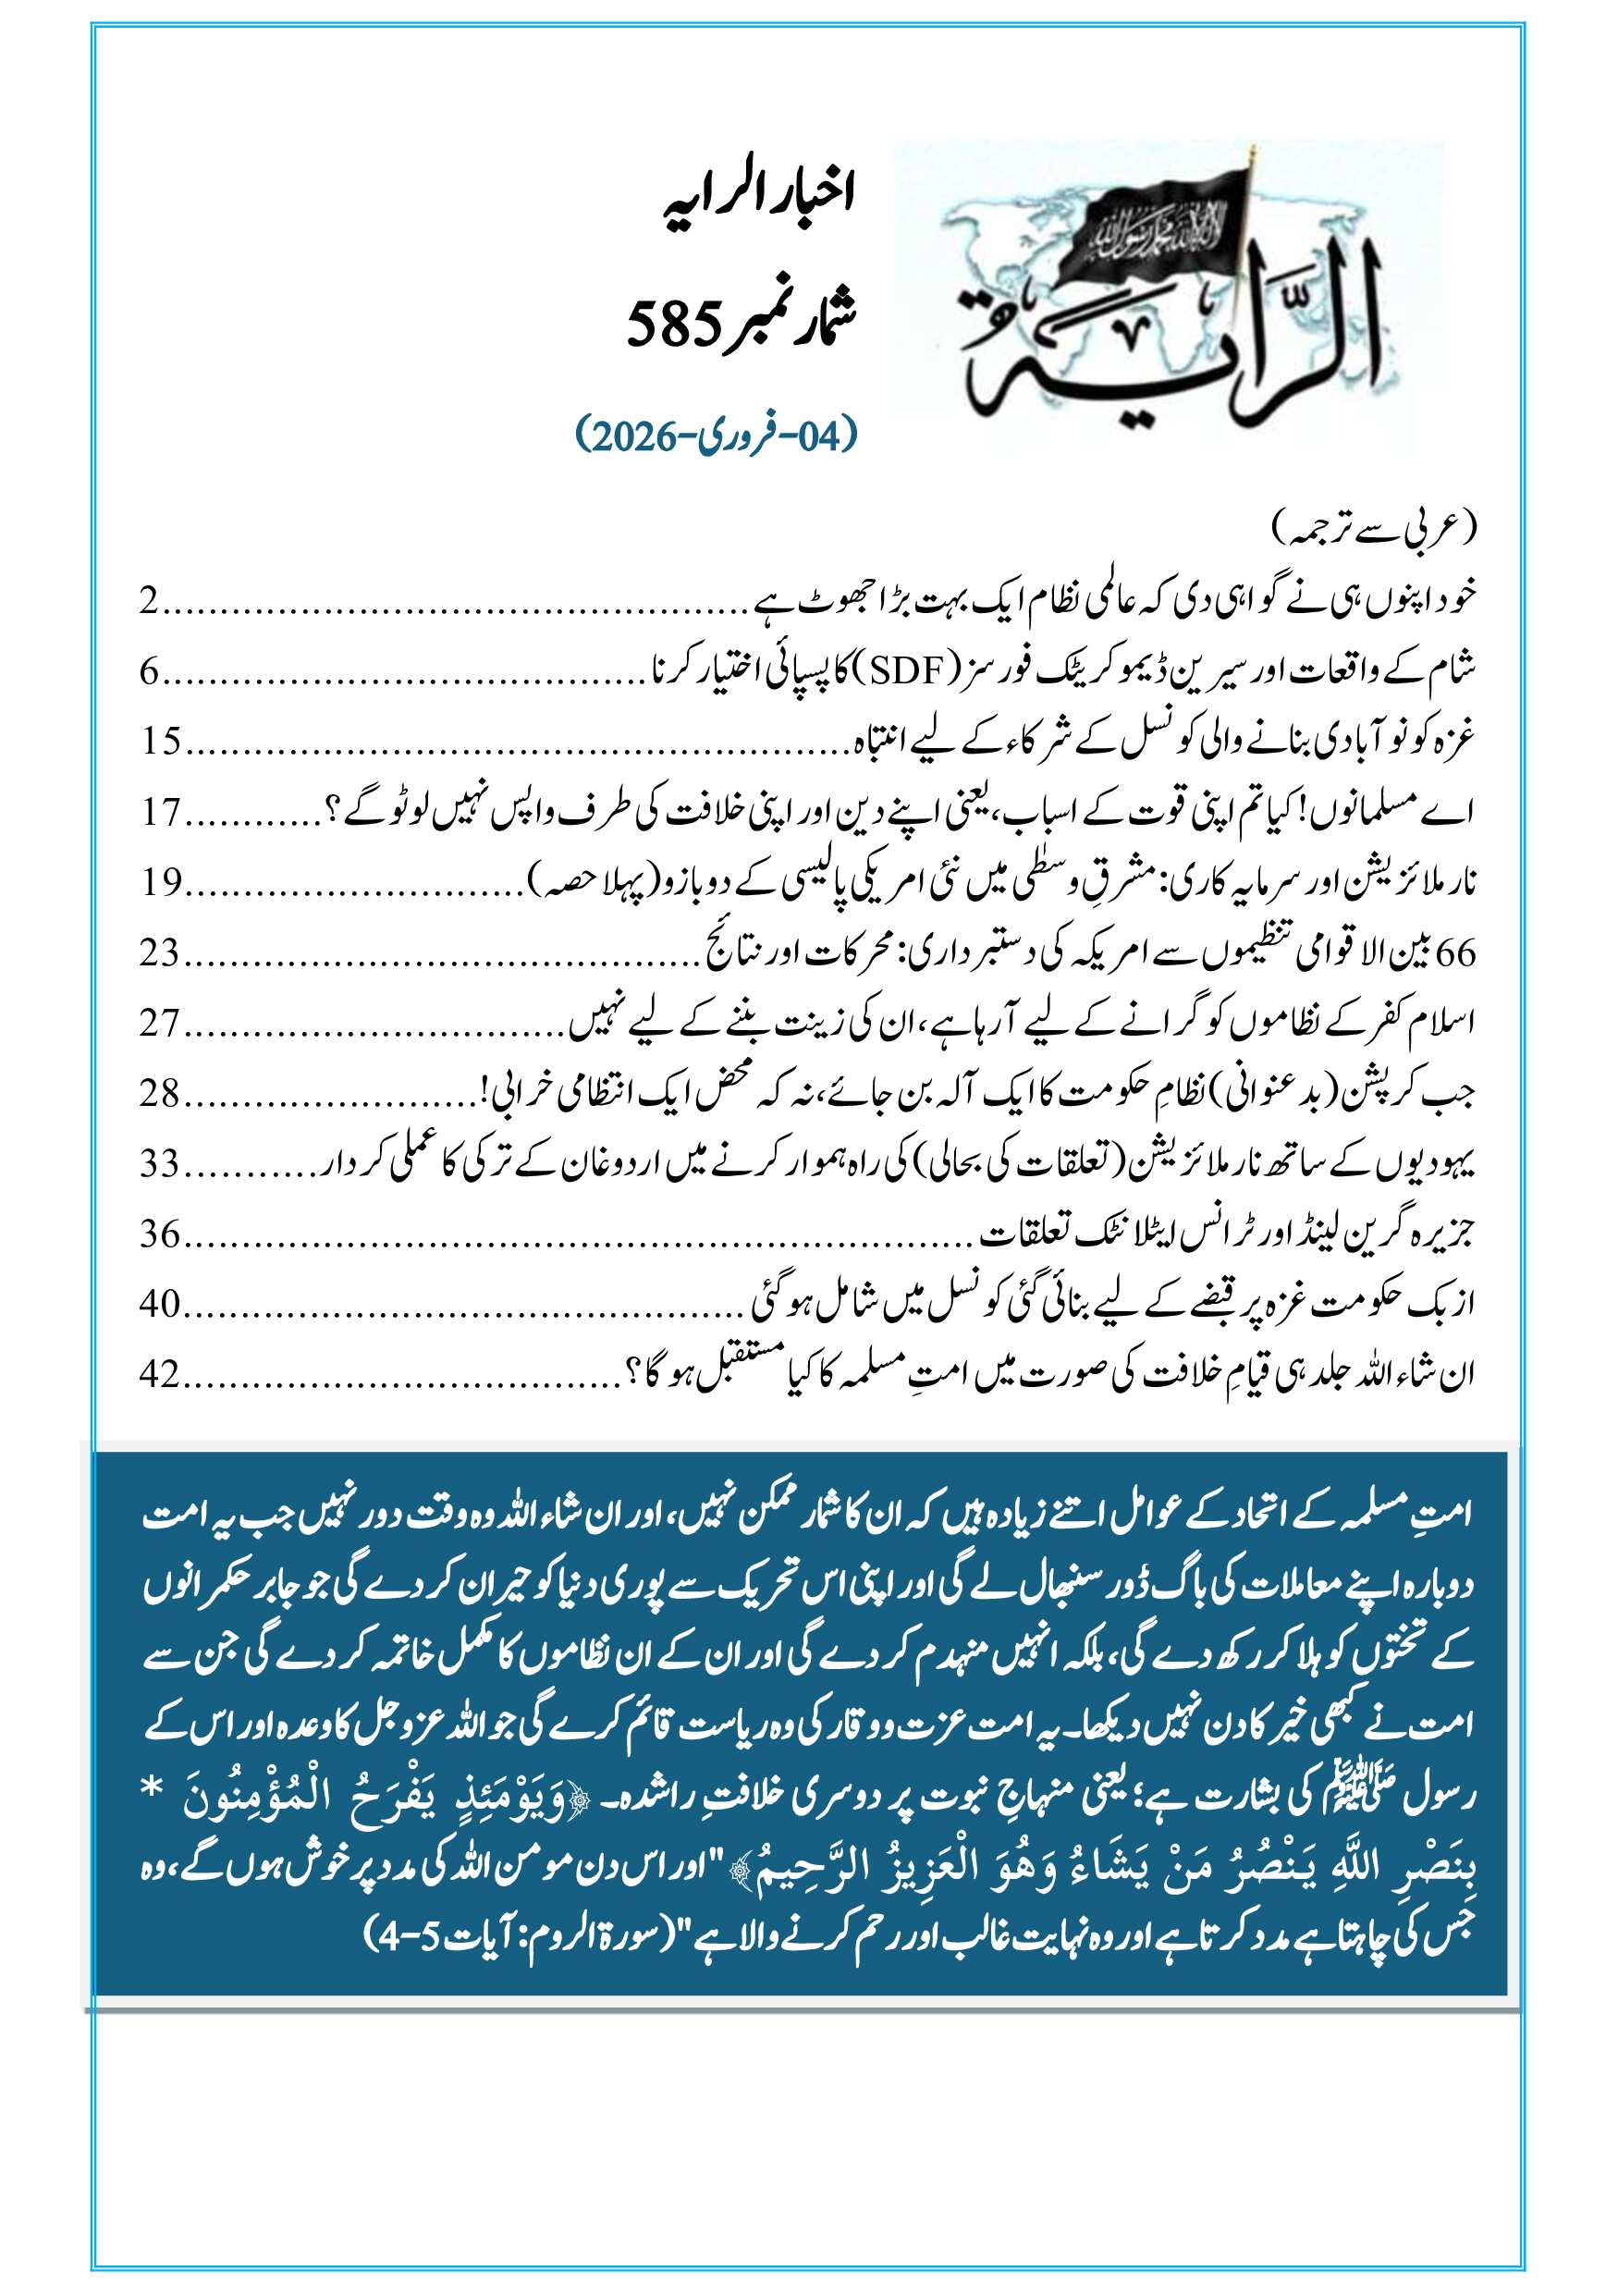 الرَّايَةُ
لا إله إلا الله محمد رسول الله
اخبار الرایہ
شمار نمبر 585
(04-فروری-2026)
(عربی سے ترجمہ)
خود اپنوں ہی نے گواہی دی کہ عالمی نظام ایک بہت بڑا جھوٹ ہے....................................................2
شام کے واقعات اور سیرین ڈیموکریٹک فورسز (SDF) کا پسپائی اختیار کرنا...........................................6
غزہ کو نو آبادی بنانے والی کونسل کے شرکاء کے لیے انتباہ...........................................................15
اے مسلمانوں! کیا تم اپنی قوت کے اسباب، یعنی اپنے دین اور اپنی خلافت کی طرف واپس نہیں لوٹو گے؟............17
نارملائزیشن اور سرمایہ کاری: مشرقِ وسطٰی میں نئی امریکی پالیسی کے دو بازو (پہلا حصہ)..............................19
66 بین الاقوامی تنظیموں سے امریکہ کی دستبرداری: محرکات اور نتائج..............................................23
اسلام کفر کے نظاموں کو گرانے کے لیے آ رہا ہے، ان کی زینت بننے کے لیے نہیں..................................27
جب کرپشن (بدعنوانی) نظامِ حکومت کا ایک آلہ بن جائے، نہ کہ محض ایک انتظامی خرابی!..........................28
یہودیوں کے ساتھ نارملائزیشن (تعلقات کی بحالی) کی راہ ہموار کرنے میں اردوغان کے ترکی کا عملی کردار............33
جزیرہ گرین لینڈ اور ٹرانس ایٹلانٹک تعلقات......................................................................36
ازبک حکومت غزہ پر قبضے کے لیے بنائی گئی کونسل میں شامل ہو گئی..................................................40
ان شاء اللہ جلد ہی قیامِ خلافت کی صورت میں امتِ مسلمہ کا کیا مستقبل ہو گا؟.......................................42
امتِ مسلمہ کے اتحاد کے عوامل اتنے زیادہ ہیں کہ ان کا شمار ممکن نہیں، اور ان شاء اللہ وہ وقت دور نہیں جب یہ امت
دوبارہ اپنے معاملات کی باگ ڈور سنبھال لے گی اور اپنی اس تحریک سے پوری دنیا کو حیران کر دے گی جو جابر حکمرانوں
کے تختوں کو ہلا کر رکھ دے گی، بلکہ انہیں منہدم کر دے گی اور ان کے ان نظاموں کا مکمل خاتمہ کر دے گی جن سے
امت نے کبھی خیر کا دن نہیں دیکھا۔ یہ امت عزت و وقار کی وہ ریاست قائم کرے گی جو اللہ عزوجل کا وعدہ اور اس کے
رسول ﷺ کی بشارت ہے؛ یعنی منہاجِ نبوت پر دوسری خلافتِ راشدہ۔ ﴿وَيَوْمَئِذٍ يَفْرَحُ الْمُؤْمِنُونَ *
بِنَصْرِ اللَّهِ يَنْصُرُ مَنْ يَشَاءُ وَهُوَ الْعَزِيزُ الرَّحِيمُ﴾ "اور اس دن مومن اللہ کی مدد پر خوش ہوں گے، وہ
جس کی چاہتا ہے مدد کرتا ہے اور وہ نہایت غالب اور رحم کرنے والا ہے" (سورۃ الروم: آیات 5-4)